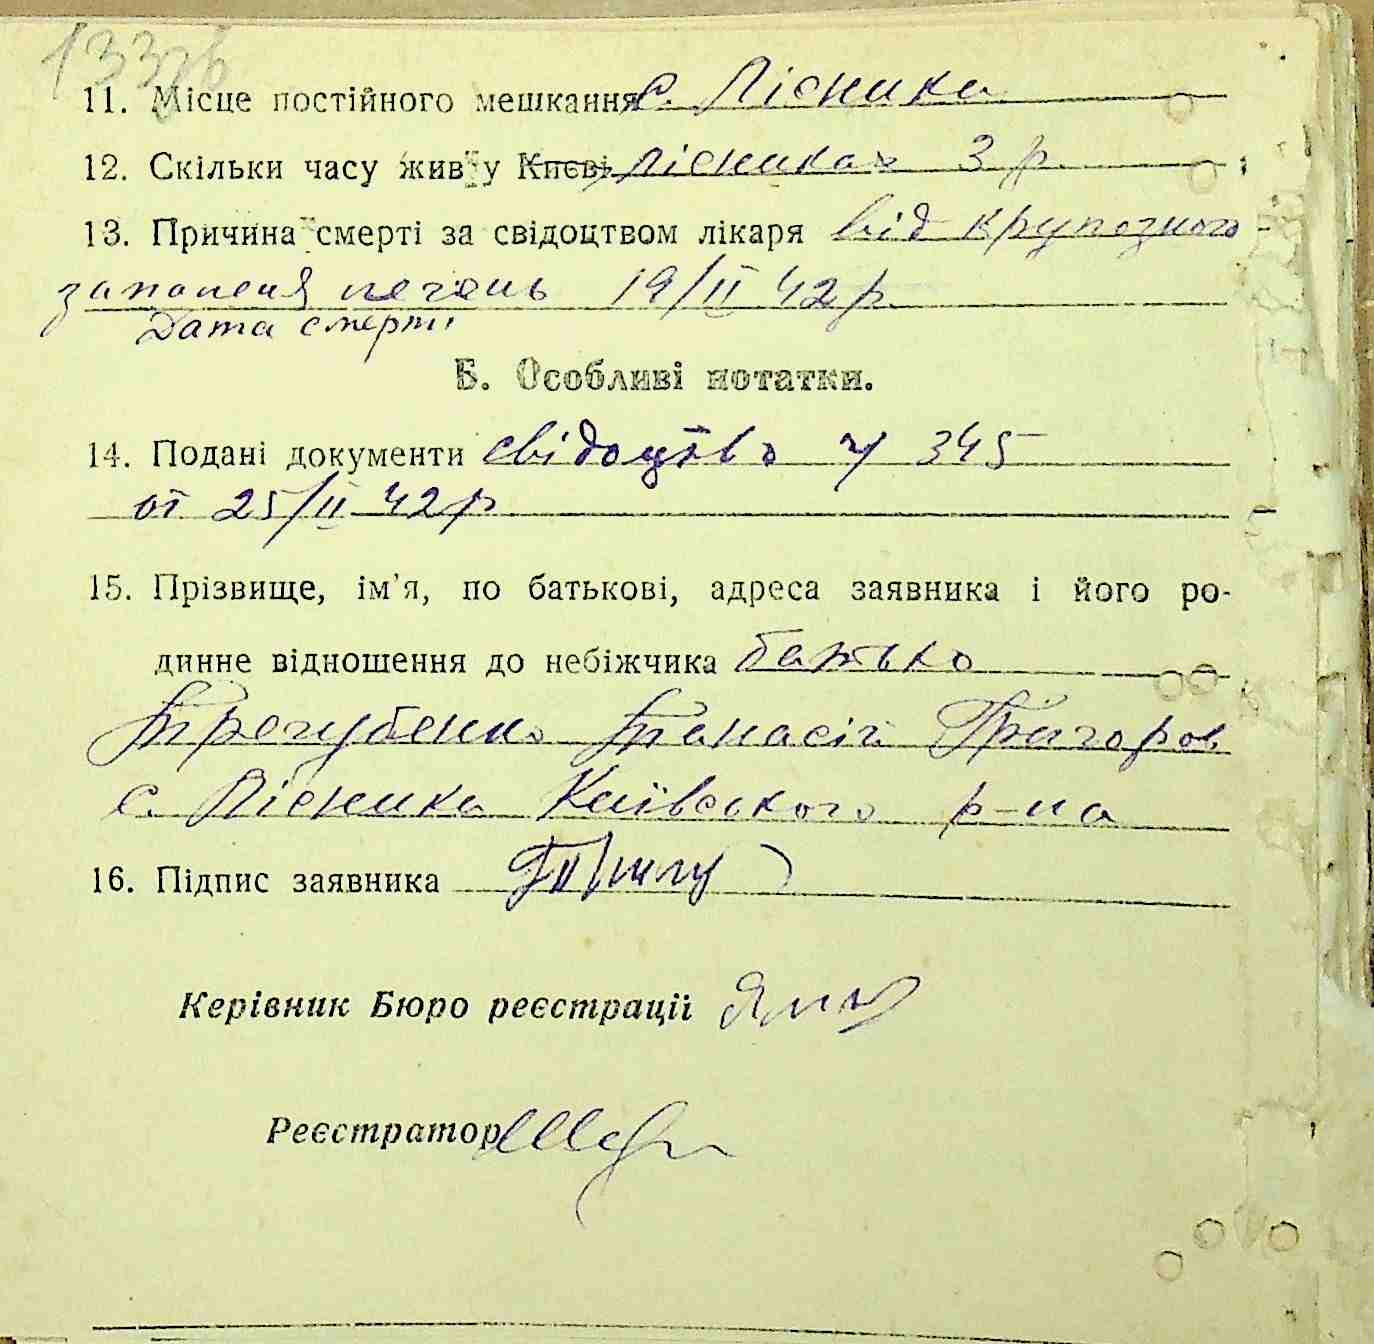 133зв
11. Місце постійного мешкання с. Лісники
12. Скільки часу жив у Києві Лісниках 3 р.
13. Причина смерті за свідоцтвом лікаря від крупозного
запаленя легень 19/II 42 р.
Дата смерті
Б. Особливі нотатки.
14. Подані документи свідоцтво ч 345
от 25/II 42 р
15. Прізвище, ім'я, по батькові, адреса заявника і його ро-
динне відношення до небіжчика батько
Трегубенко Танасій Григоров
с. Лісники Київського р-на
16. Підпис заявника
Керівник Бюро реєстрації
Реєстратор